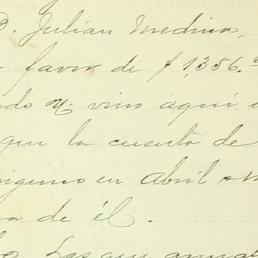 D. Julián Medina,
favor de $ 1,356.
vino aquí
que la cuenta de
en Abril
de él.
Las que